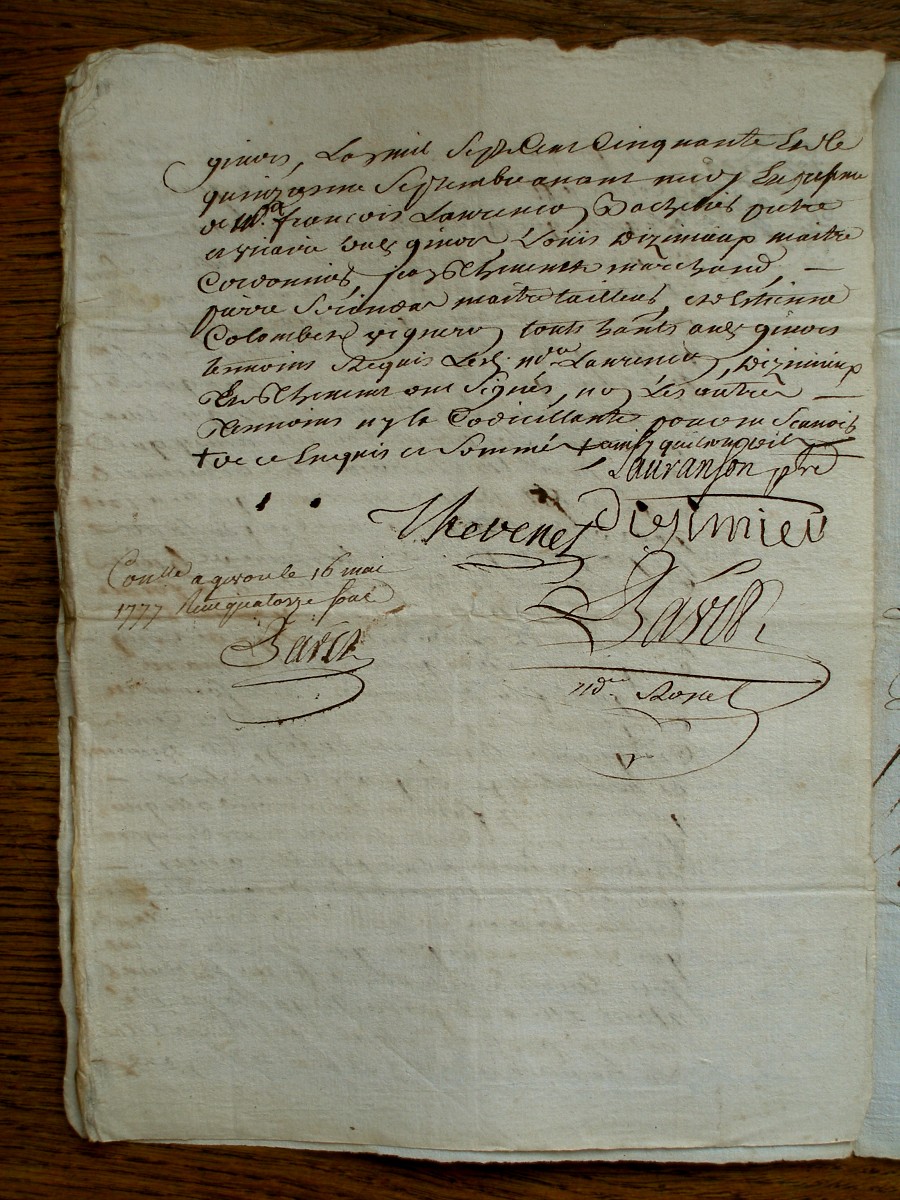 givors, L'an mil Sept Cent Cinquante Et Le
quinzieme Septembre avant midy En presence
de Mre françois Laurencon Bachelier pretre
et vicaire dud. givors Louis dizimieux maitre
Cordonnier, jean Thevenet marchand, —
pierre maitre tailleur, et Estienne
Colombet vigneron touts habts aud. givors
temoins Requis Lesd. Laurencon, dizimieux
Et Thevenet ont Signés, non Les autres —
Temoins ny la Codicillante pour ne Scavoir
+ de ce Enquis et Sommé + ainsy
Lauranson ptre
Thevenet Disimieu
Barou
Conllé a givors le 16 mai
1777 Reçu quatorze sous
Barou